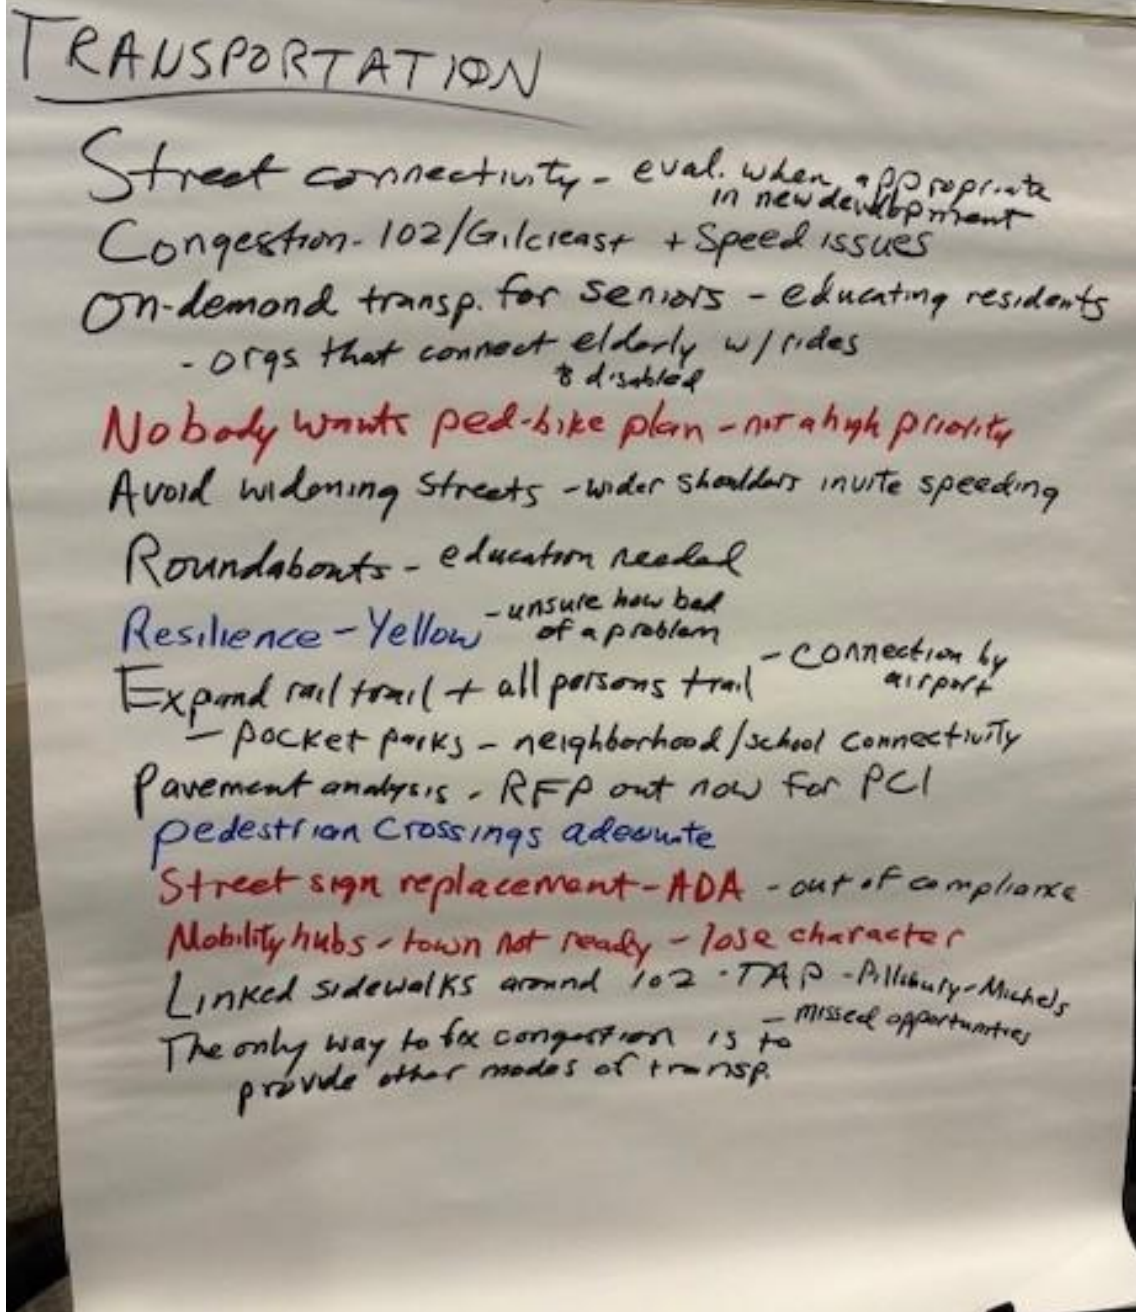 TRANSPORTATION
Street connectivity - eval. when appropriate
in new development
Congestion - 102/Gilcreast + Speed issues
On-demond transp. for seniors - educating residents
- orgs that connect elderly w/ rides
& disabled
Nobody wants ped-bike plan - not a high priority
Avoid widening streets - wider shoulders invite speeding
Roundabouts - education needed
Resilience - Yellow - unsure how bad
of a problem
Expand rail trail + all persons trail - connection by
airport
- pocket parks - neighborhood/school connectivity
Pavement analysis - RFP out now for PCI
pedestrian crossings adequate
Street sign replacement - ADA - out of compliance
Mobility hubs - town not ready - lose character
Linked sidewalks around 102 - TAP - Pillsbury - Michels
- missed opportunities
The only way to fix congestion is to
provide other modes of transp.